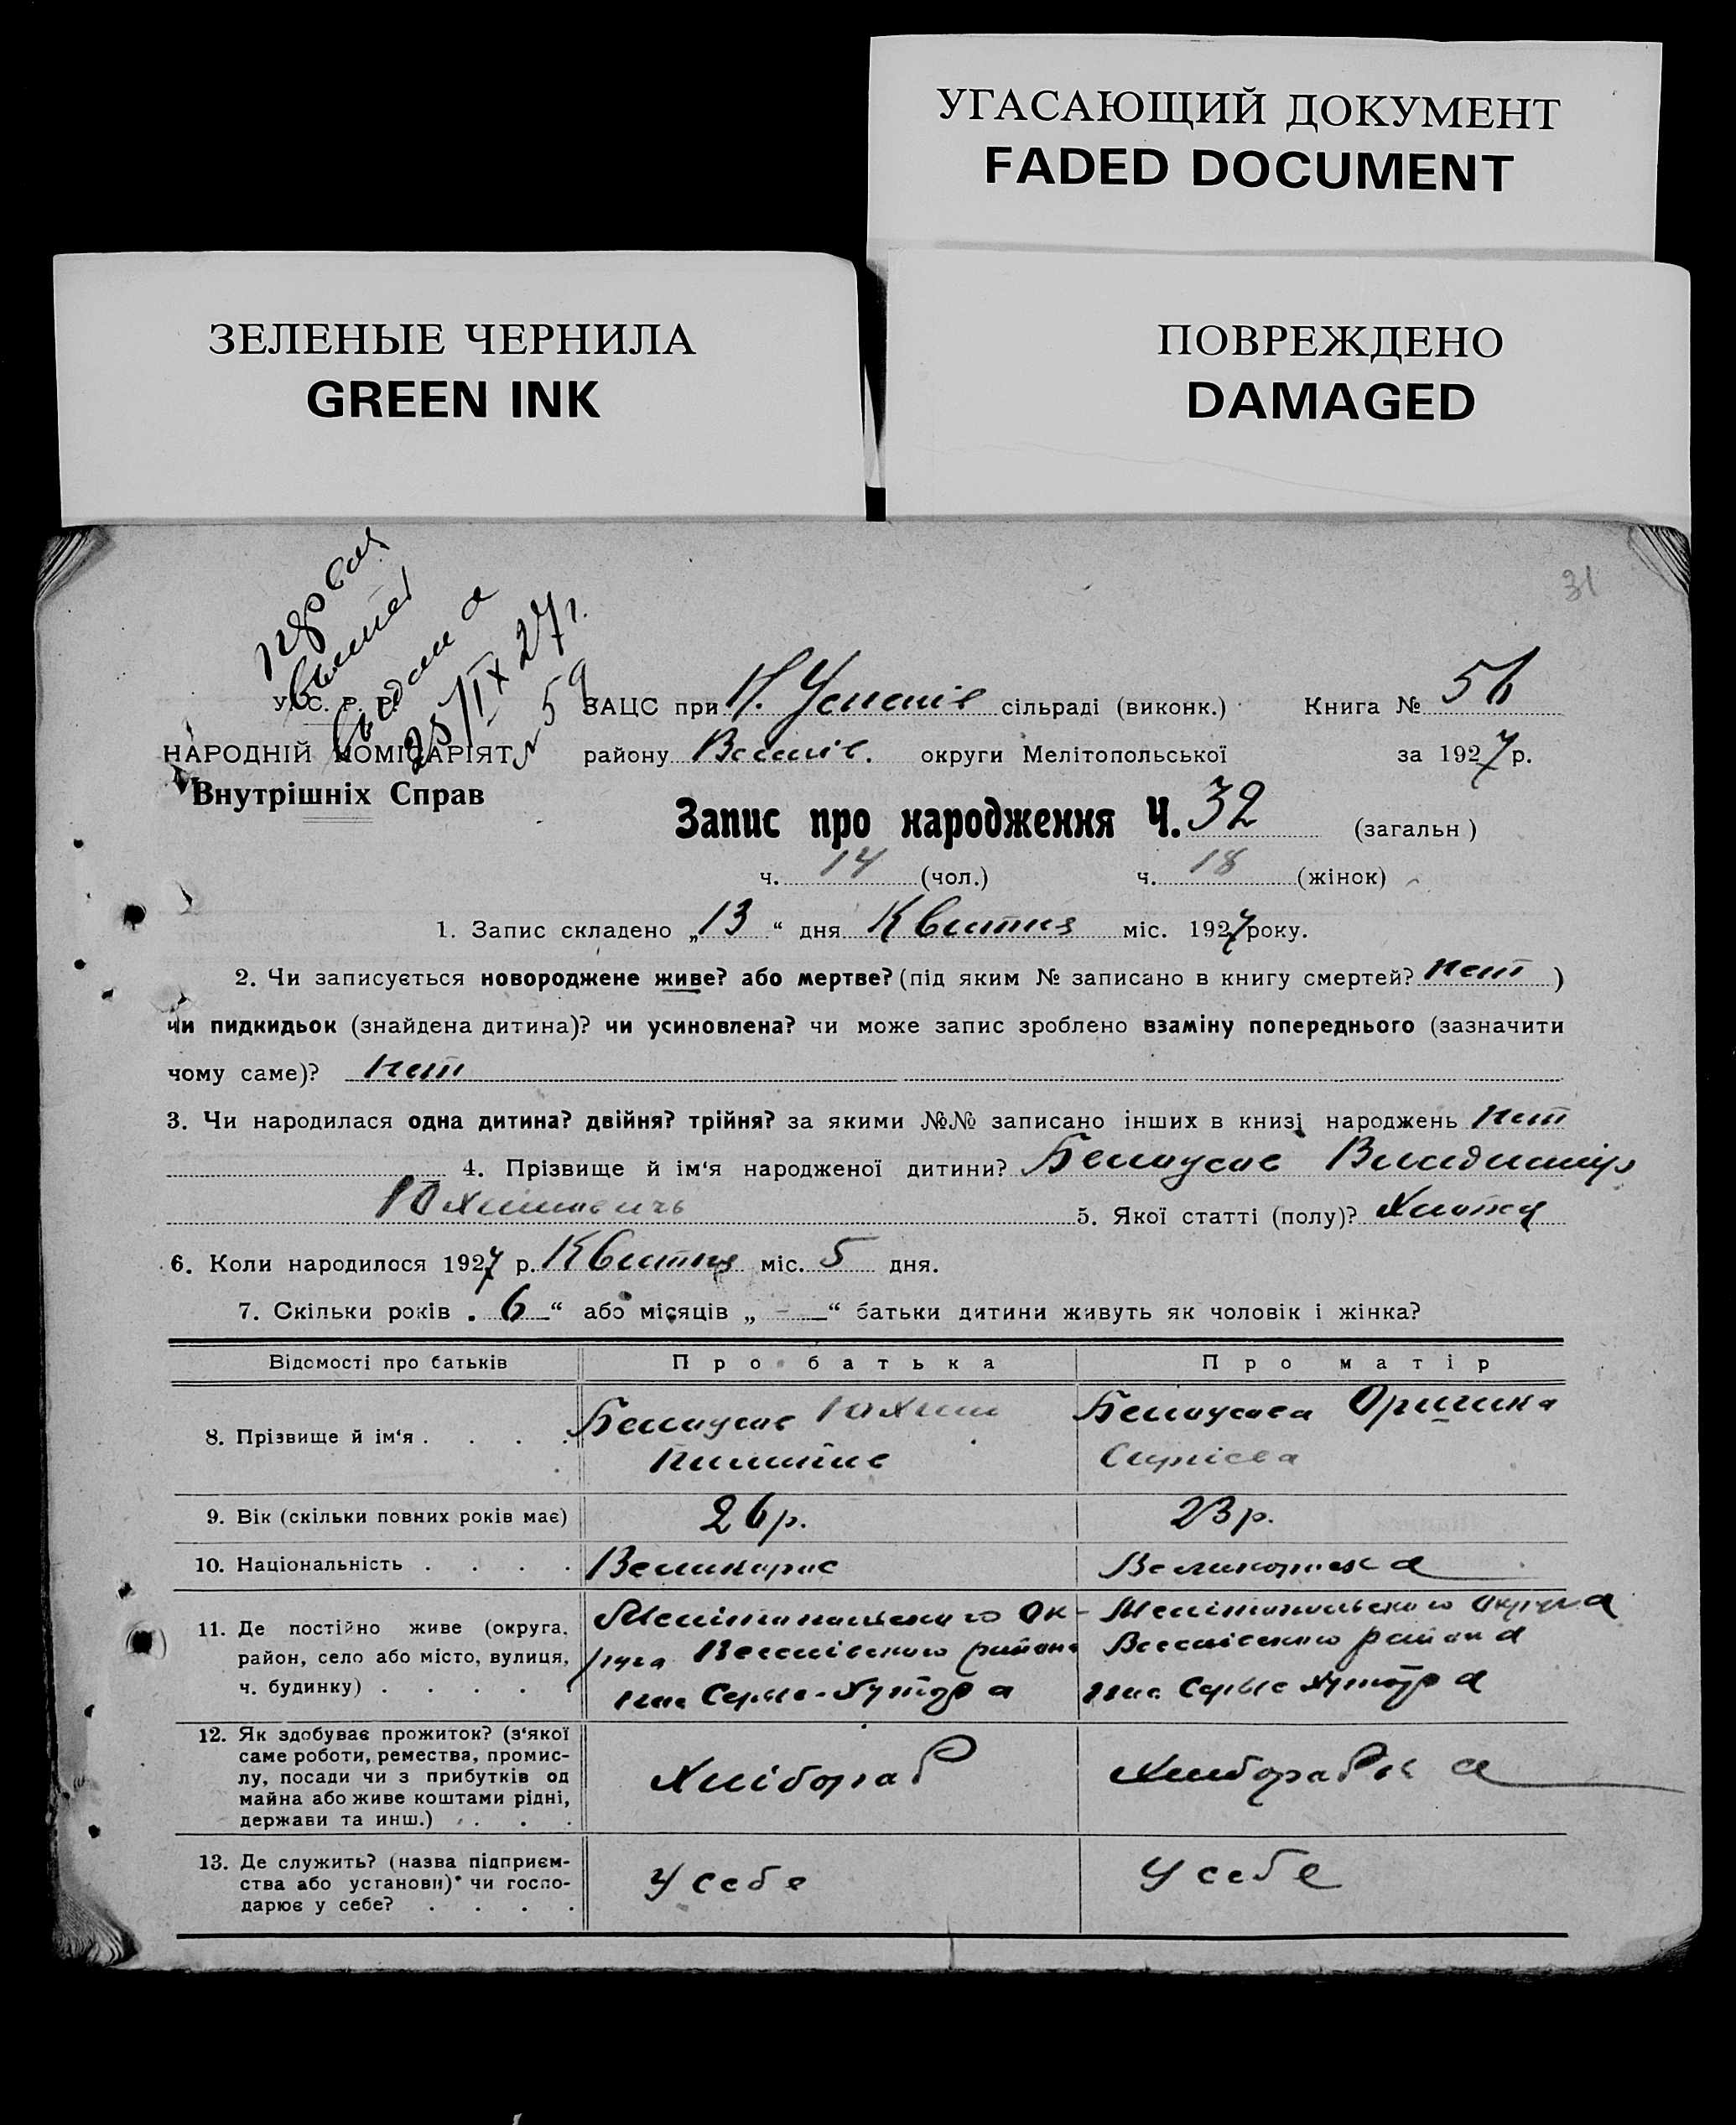 УГАСАЮЩИЙ ДОКУМЕНТ
FADED DOCUMENT
ЗЕЛЕНЫЕ ЧЕРНИЛА
GREEN INK
ПОВРЕЖДЕНО
DAMAGED
31
выдана
25/IX 27 г.
№ 59
У. С. Р. Р.
НАРОДНІЙ КОМІСАРІЯТ
Внутрішніх Справ
ЗАЦС при Н. Успенів сільраді (виконк.) Книга № 56
району Веселів. округи Мелітопольської за 1927 р.
Запис про народження Ч. 32 (загальн)
ч. 14 (чол.) ч. 18 (жінок)
1. Запис складено „13“ дня Квитня міс. 1927 року.
2. Чи записується новороджене живе? або мертве? (під яким № записано в книгу смертей? нет)
чи пидкидьок (знайдена дитина)? чи усиновлена? чи може запис зроблено взаміну попереднього (зазначити
чому саме)? нет
3. Чи народилася одна дитина? двійня? трійня? за якими №№ записано інших в книзі народжень нет
4. Прізвище й ім‘я народженої дитини? Белоусов Владимир
Юхимовичь 5. Якої статті (полу)?
6. Коли народилося 1927 р. Квитня міс. 5 дня.
7. Скільки років „6“ або місяців „ — “ батьки дитини живуть як чоловік і жінка?
Відомості про батьків Про батька Про матір
8. Прізвище й ім‘я . . . . Белоусов Юхим Белоусова Оришка
9. Вік (скільки повних років має) 26 р. 23 р.
10. Національність . . . . Великорос Великороска
11. Де постійно живе (округа, район, село або місто, вулиця, ч. будинку) . . . . .
Мелітопольского Ок-
руга Веселівского района
пос Серые-Хутора
Мелітопольского Округа
Веселівского района
пос. Серые Хутора
12. Як здобуває прожиток? (з‘якої
саме роботи, ремества, промис-
лу, посади чи з прибутків од
майна або живе коштами рідні,
держави та инш.) . . . .
Хлібораб Хлиборабка
13. Де служить? (назва підприєм-
ства або установи) чи госпо-
дарює у себе? . . . .
У себе У себе